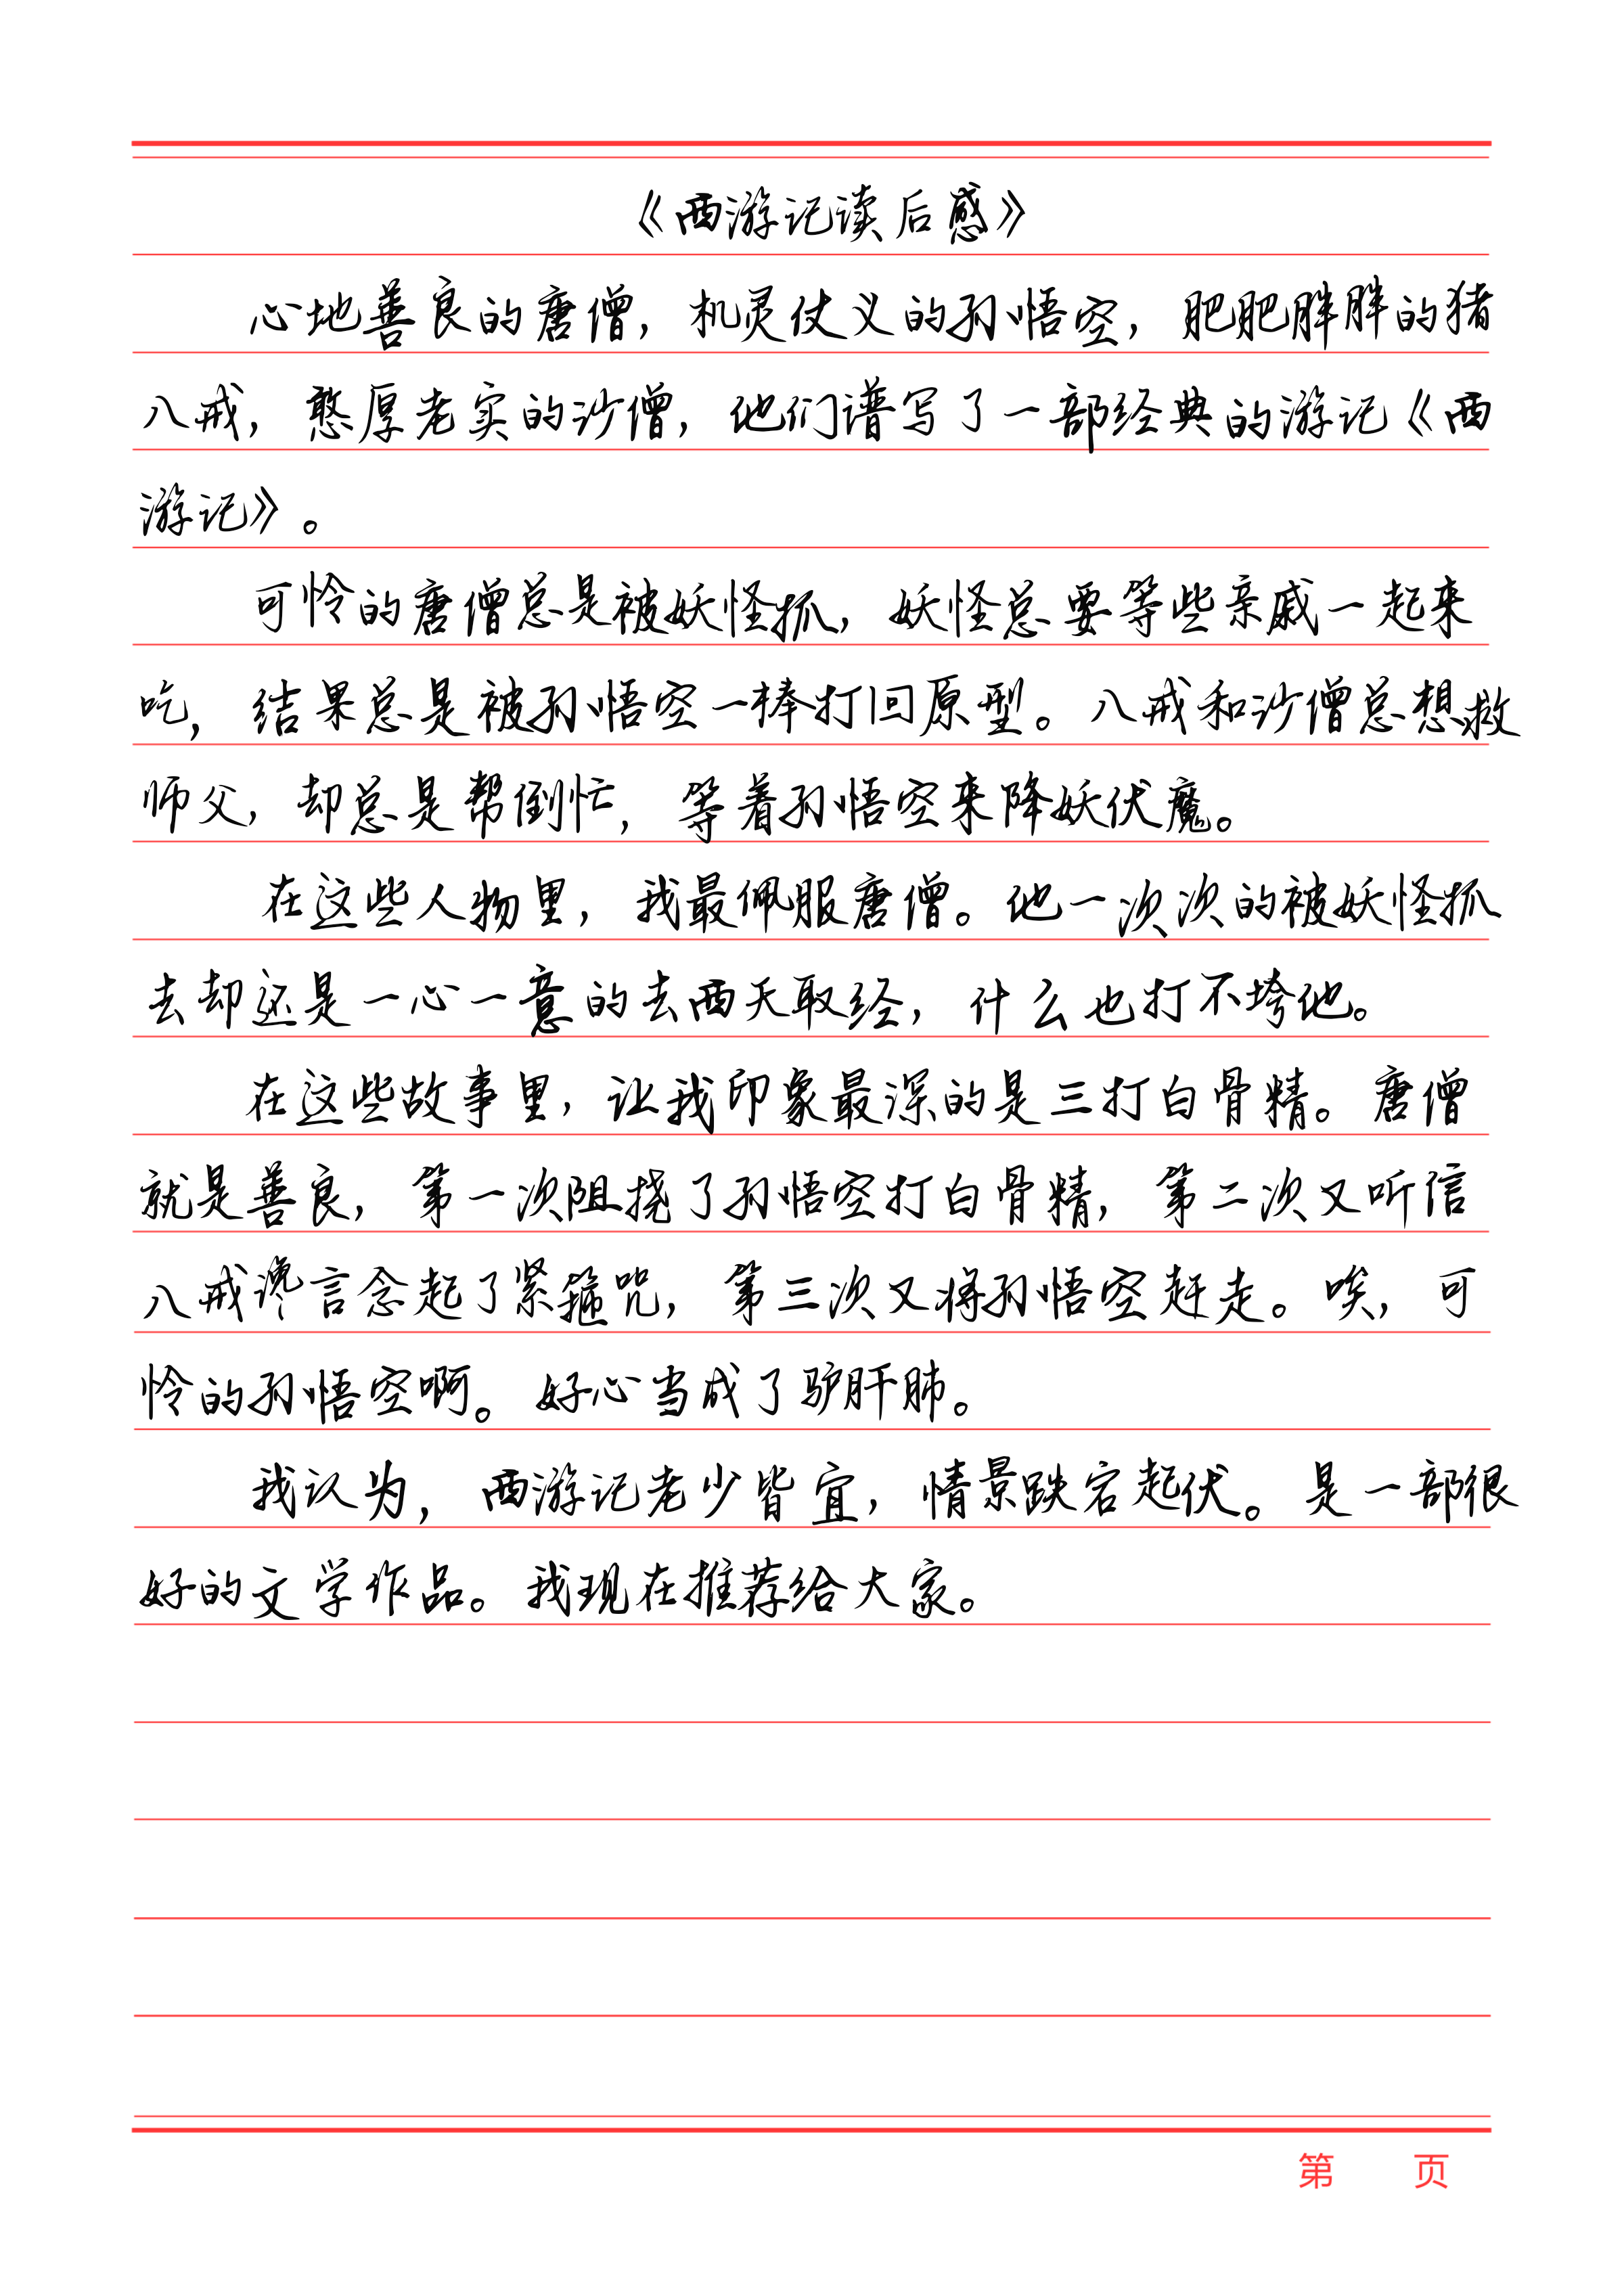 《西游记读后感》
心地善良的唐僧，机灵仗义的孙悟空，肥肥胖胖的猪
八戒，憨厚老实的沙僧，他们谱写了一部经典的游记《西
游记》。
可怜的唐僧总是被妖怪抓，妖怪总要等些亲戚一起来
吃，结果总是被孙悟空一棒打回原型。八戒和沙僧总想救
师父，却总是帮倒忙，等着孙悟空来降妖伏魔。
在这些人物里，我最佩服唐僧。他一次次的被妖怪抓
去却还是一心一意的去西天取经，什么也打不垮他。
在这些故事里，让我印象最深的是三打白骨精。唐僧
就是善良，第一次阻挠了孙悟空打白骨精，第二次又听信
八戒谗言念起了紧箍咒，第三次又将孙悟空赶走。唉，可
怜的孙悟空啊。好心当成了驴肝肺。
我认为，西游记老少皆宜，情景跌宕起伏。是一部很
好的文学作品。我现在推荐给大家。
第 页